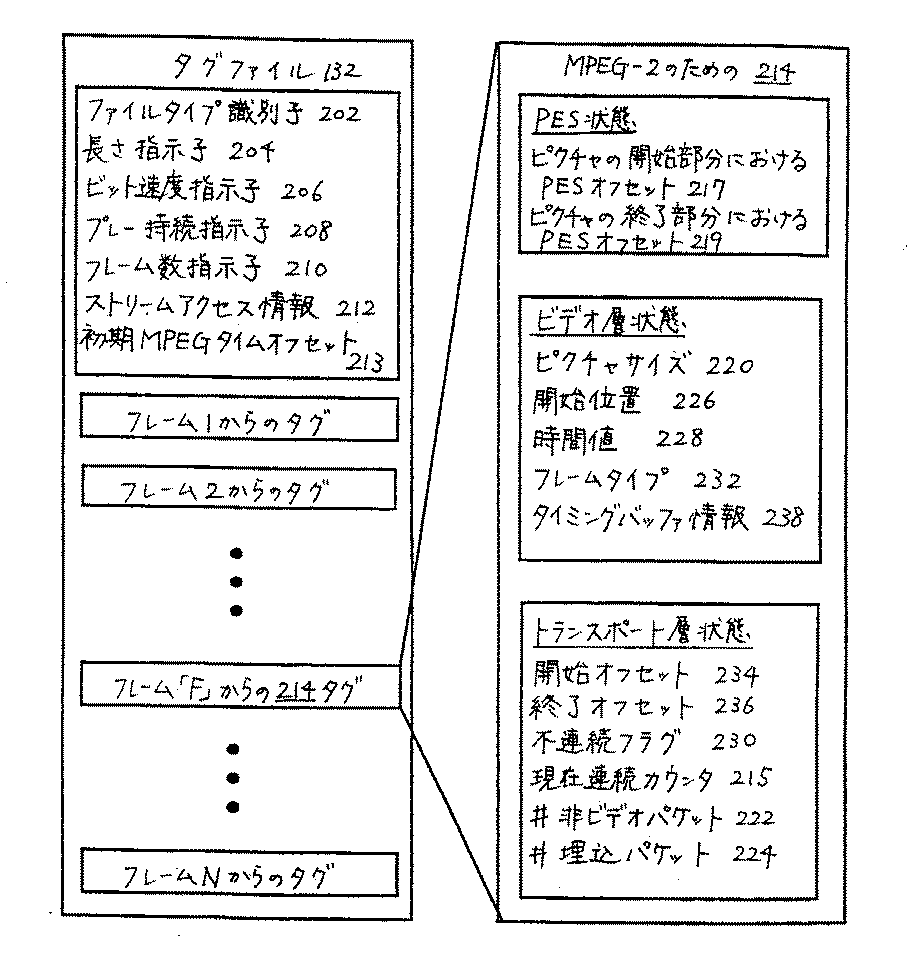 タグファイル 132
ファイルタイプ識別子 202
長さ指示子 204
ビット速度指示子 206
プレー持続指示子 208
フレーム数指示子 210
ストリームアクセス情報 212
初期MPEGタイムオフセット
213
フレーム1からのタグ
フレーム2からのタグ
フレーム「F」からの214タグ
フレームNからのタグ
MPEG-2のための 214
PES状態
ピクチャの開始部分における
PESオフセット 217
ピクチャの終了部分における
PESオフセット 219
ビデオ層状態
ピクチャサイズ 220
開始位置 226
時間値 228
フレームタイプ 232
タイミングバッファ情報 238
トランスポート層状態
開始オフセット 234
終了オフセット 236
不連続フラグ 230
現在連続カウンタ 215
# 非ビデオパケット 222
# 埋込パケット 224